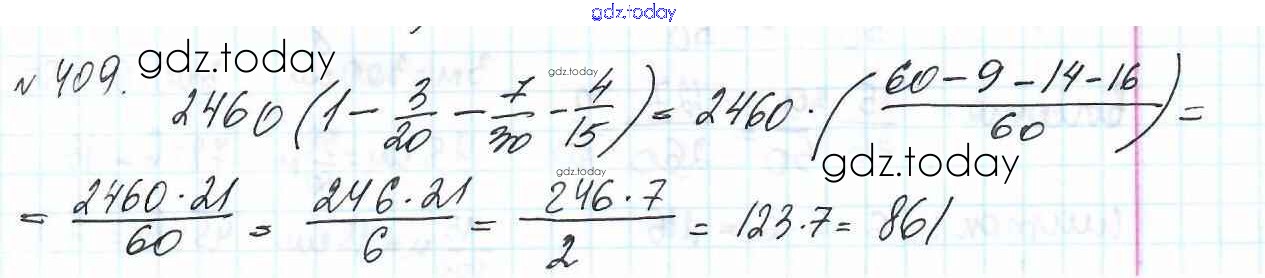 gdz.today
№ 409. gdz.today
gdz.today
2460 (1 - 3/20 - 7/30 - 4/15) = 2460 · ((60 - 9 - 14 - 16)/60) =
gdz.today
gdz.today
= (2460 · 21)/60 = (246 · 21)/6 = (246 · 7)/2 = 123 · 7 = 861